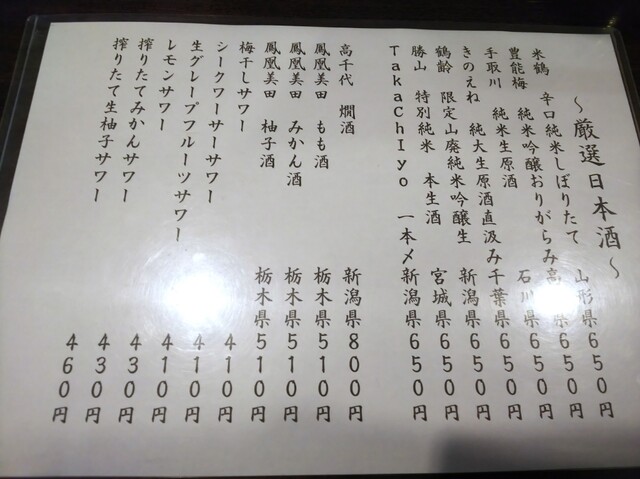 ～厳選日本酒～
米鶴 辛口純米しぼりたて 山形県650円
豊能梅 純米吟醸おりがらみ 高 県650円
手取川 純米生原酒 石川県650円
きのえね 純大生原酒直汲み 千葉県650円
鶴齢 限定山廃純米吟醸生 新潟県650円
勝山 特別純米 本生酒 宮城県650円
TakachIyo 一本〆 新潟県650円
高千代 燗酒 新潟県800円
鳳凰美田 もも酒 栃木県510円
鳳凰美田 みかん酒 栃木県510円
鳳凰美田 柚子酒 栃木県510円
梅干しサワー 410円
シークワーサーサワー 410円
生グレープフルーツサワー 410円
レモンサワー 430円
搾りたてみかんサワー 430円
搾りたて生柚子サワー 460円